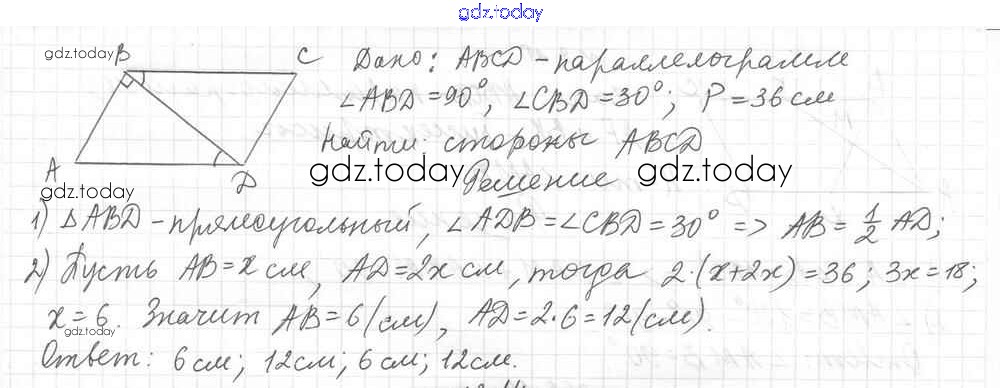 gdz.today
gdz.today B C Дано: ABCD - параллелограмм
∠ABD = 90°, ∠CBD = 30°; P = 36 см
Найти: стороны ABCD
A D
gdz.today gdz.today gdz.today
Решение
1) △ABD - прямоугольный, ∠ADB = ∠CBD = 30° => AB = 1/2 AD;
2) Пусть AB = x см, AD = 2x см, тогда 2·(x+2x) = 36; 3x = 18;
x = 6. Значит AB = 6 (см), AD = 2·6 = 12 (см).
gdz.today
Ответ: 6 см; 12 см; 6 см; 12 см.